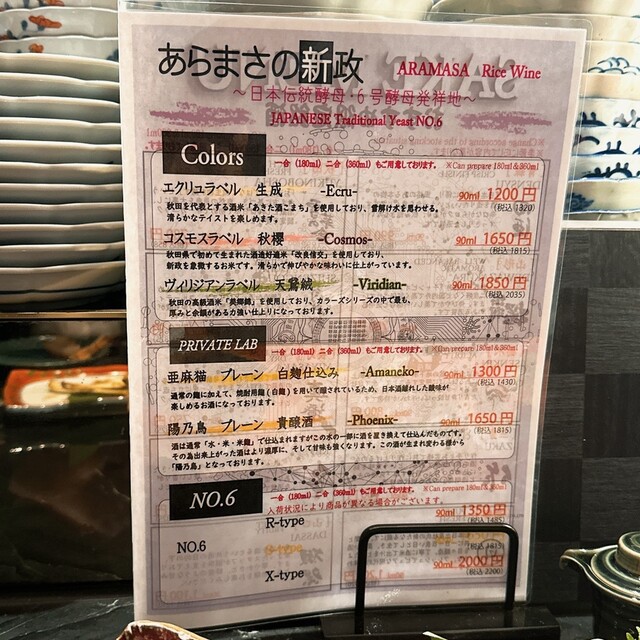 あらまさの新政 ARAMASA Rice Wine
～日本伝統酵母 6号酵母発祥地～
JAPANESE Traditional Yeast NO.6
Colors
一合 (180ml) 二合 (360ml) もご用意しております。 ※Can prepare 180ml&360ml
エクリュラベル 生成 -Ecru- 90ml 1200円
(税込 1320)
秋田を代表とする酒米「あきた酒こまち」を使用しており、雪解け水を思わせる。
清らかなテイストを楽しめます。
コスモスラベル 秋櫻 -Cosmos- 90ml 1650円
(税込 1815)
秋田県で初めて生まれた酒造好適米「改良信交」を使用しており、
新政を象徴するお米です。清らかで伸びやかな味わいに仕上がっています。
ヴィリジアンラベル 天鵞絨 -Viridian- 90ml 1850円
(税込 2035)
秋田の高級酒米「美郷錦」を使用しており、カラーズシリーズの中で最も、
厚みと余韻がある力強い仕上りになっております。
PRIVATE LAB
一合 (180ml) 二合 (360ml) もご用意しております。 ※Can prepare 180ml&360ml
亜麻猫 プレーン 白麹仕込み -Amaneko- 90ml 1300円
(税込 1430)
通常の麹に加えて、焼酎用麹(白麹)を用いて醸されているため、日本酒離れした酸味が
楽しめるお酒になっております。
陽乃鳥 プレーン 貴醸酒 -Phoenix- 90ml 1650円
(税込 1815)
酒は通常「水・米・米麹」で仕込まれますがこの水の一部に酒を置き換えて仕込んだものです。
その為出来上がった酒はより濃厚に、そして甘味も強くなります。この酒が生まれ変わる様から
「陽乃鳥」となっております。
NO.6
一合 (180ml) 二合 (360ml) もご用意しております。 ※Can prepare 180ml&360ml
入荷状況により商品が異なる場合がございます。
R-type 90ml 1350円
(税込 1485)
NO.6
(税込 1815)
X-type 90ml 2000円
(税込 2200)